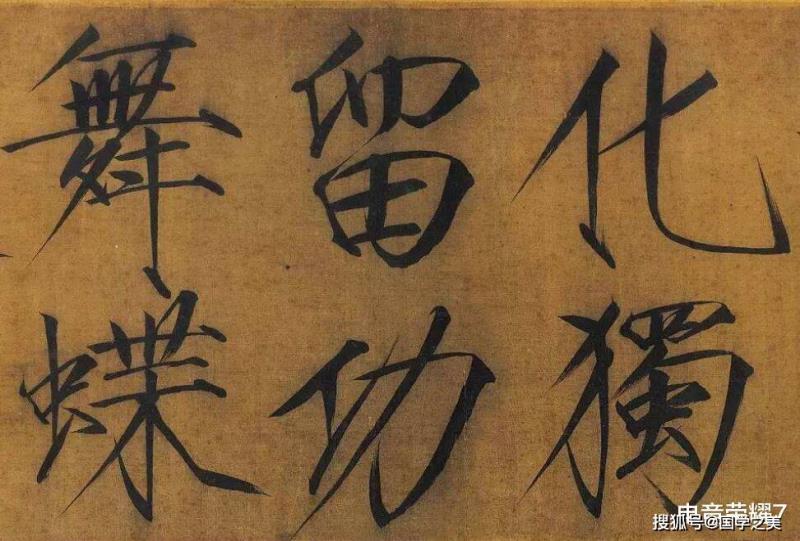 化獨
留功
舞蝶
电音荣耀7
搜狐号@国学之美